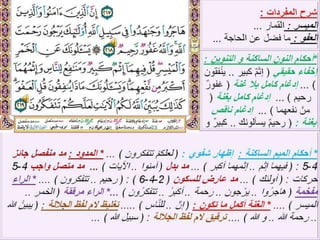 شرح المفردات :
الميسر : القمار ...
العفو : ما فضل عن الحاجة ...
*أحكام النون الساكنة و التنوين :
إخفاء حقيقي ( إثمٌ كبير .. ينفقون
) ... إدغام كامل بلا غنة ( غفورٌ
رحيم ) ... إدغام كامل بغنة (
من نفعهما ) ... إدغام ناقص
بغنة : ( رحيمٌ يسألونك .. كبيرٌ و
* أحكام الميم الساكنة : إظهار شفوي : ( لعلكمْ تتفكرون ) ... * المدود : مد منفصل جائز
4-5 : ( فيهما إثم .. إثمهما أكبر ) ... مد بدل ( آمنوا .. الآيات ) ... مد متصل واجب 4-5
حركات : ( أولئك ) ... مد عارض للسكون ( 2-4-6 ) : ( رحيم .. تتفكرون ) .... * الراء
مفخمة ( هاجروا .. يرجون .. رحمة .. أكبر .. تتفكرون ) ...*الراء مرققة ( الخمر ...
الميسر ) .... * الغنة أكمل ما تكون : ( إنّ .. للنّاس ) ..... تغليظ لام لفظ الجلالة : (سبيل الله
.. رحمة الله .. و الله ) .... ترقيق لام لفظ الجلالة : ( سبيل الله ) ...
إِنَّ الَّذِينَ ءَامَنُوا وَالَّذِينَ
هَاجَرُوا وَجَاهَدُوا فِي سَبِيلِ اللَّهِ أُولَٰئِكَ يَرْجُونَ رَحْمَتَ
اللَّهِ وَاللَّهُ غَفُورٌ رَّحِيمٌ ۝ يَسْأَلُونَكَ عَنِ الْخَمْرِ
وَالْمَيْسِرِ قُلْ فِيهِمَا إِثْمٌ كَبِيرٌ وَمَنَافِعُ لِلنَّاسِ وَإِثْمُهُمَا
أَكْبَرُ مِن نَّفْعِهِمَا وَيَسْأَلُونَكَ مَاذَا يُنفِقُونَ قُلِ الْعَفْوَ
كَذَٰلِكَ يُبَيِّنُ اللَّهُ لَكُمُ الْآيَاتِ لَعَلَّكُمْ تَتَفَكَّرُونَ